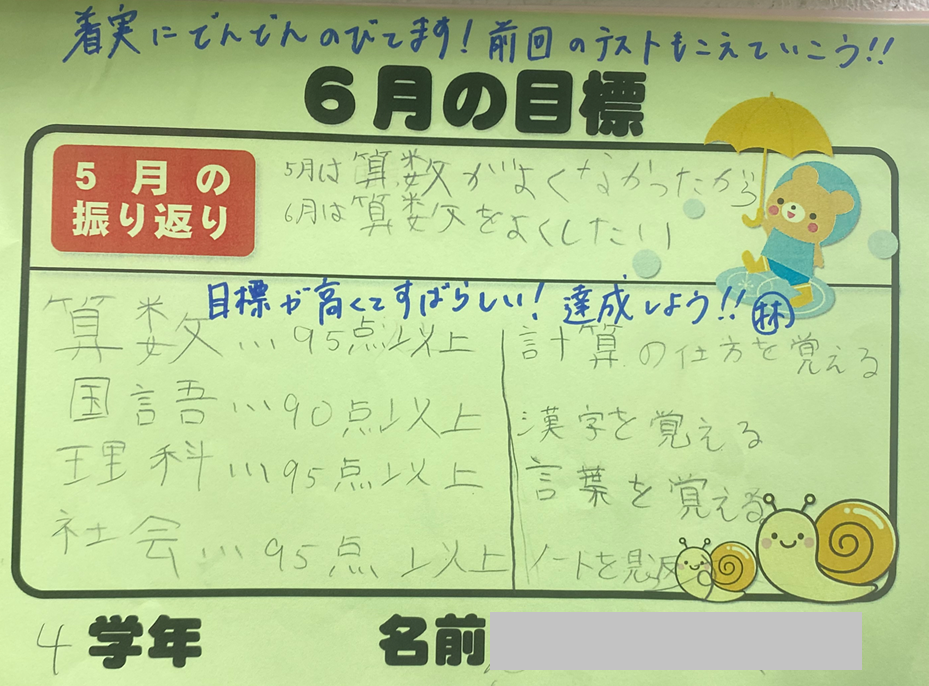 着実にでんでんのびてます!前回のテストもこえていこう!!
6月の目標
5月の
振り返り
5月は算数がよくなかったから
6月は算数をよくしたい
目標が高くてすばらしい!達成しよう!!林
算数…95点以上
国語…90点以上
理科…95点以上
社会…95点以上
計算の仕方を覚える
漢字を覚える
言葉を覚える
ノートを見返す
4学年
名前